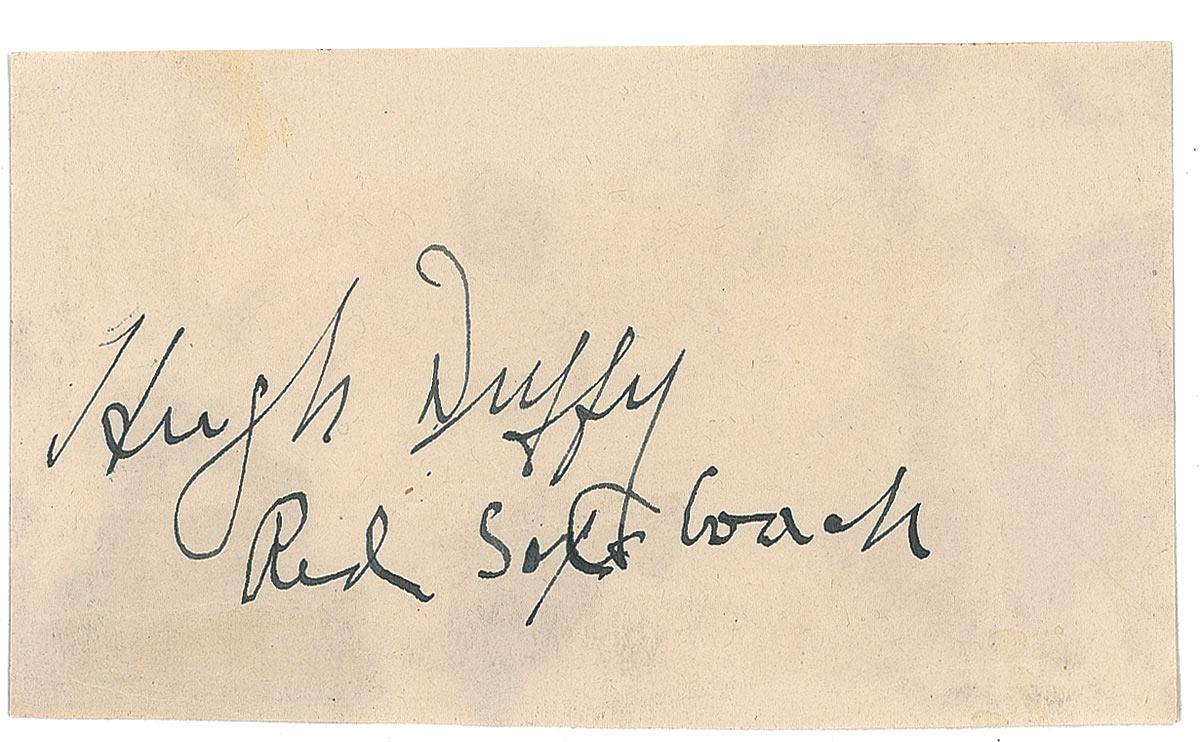 Hugh Duffy
Red Sox Coach